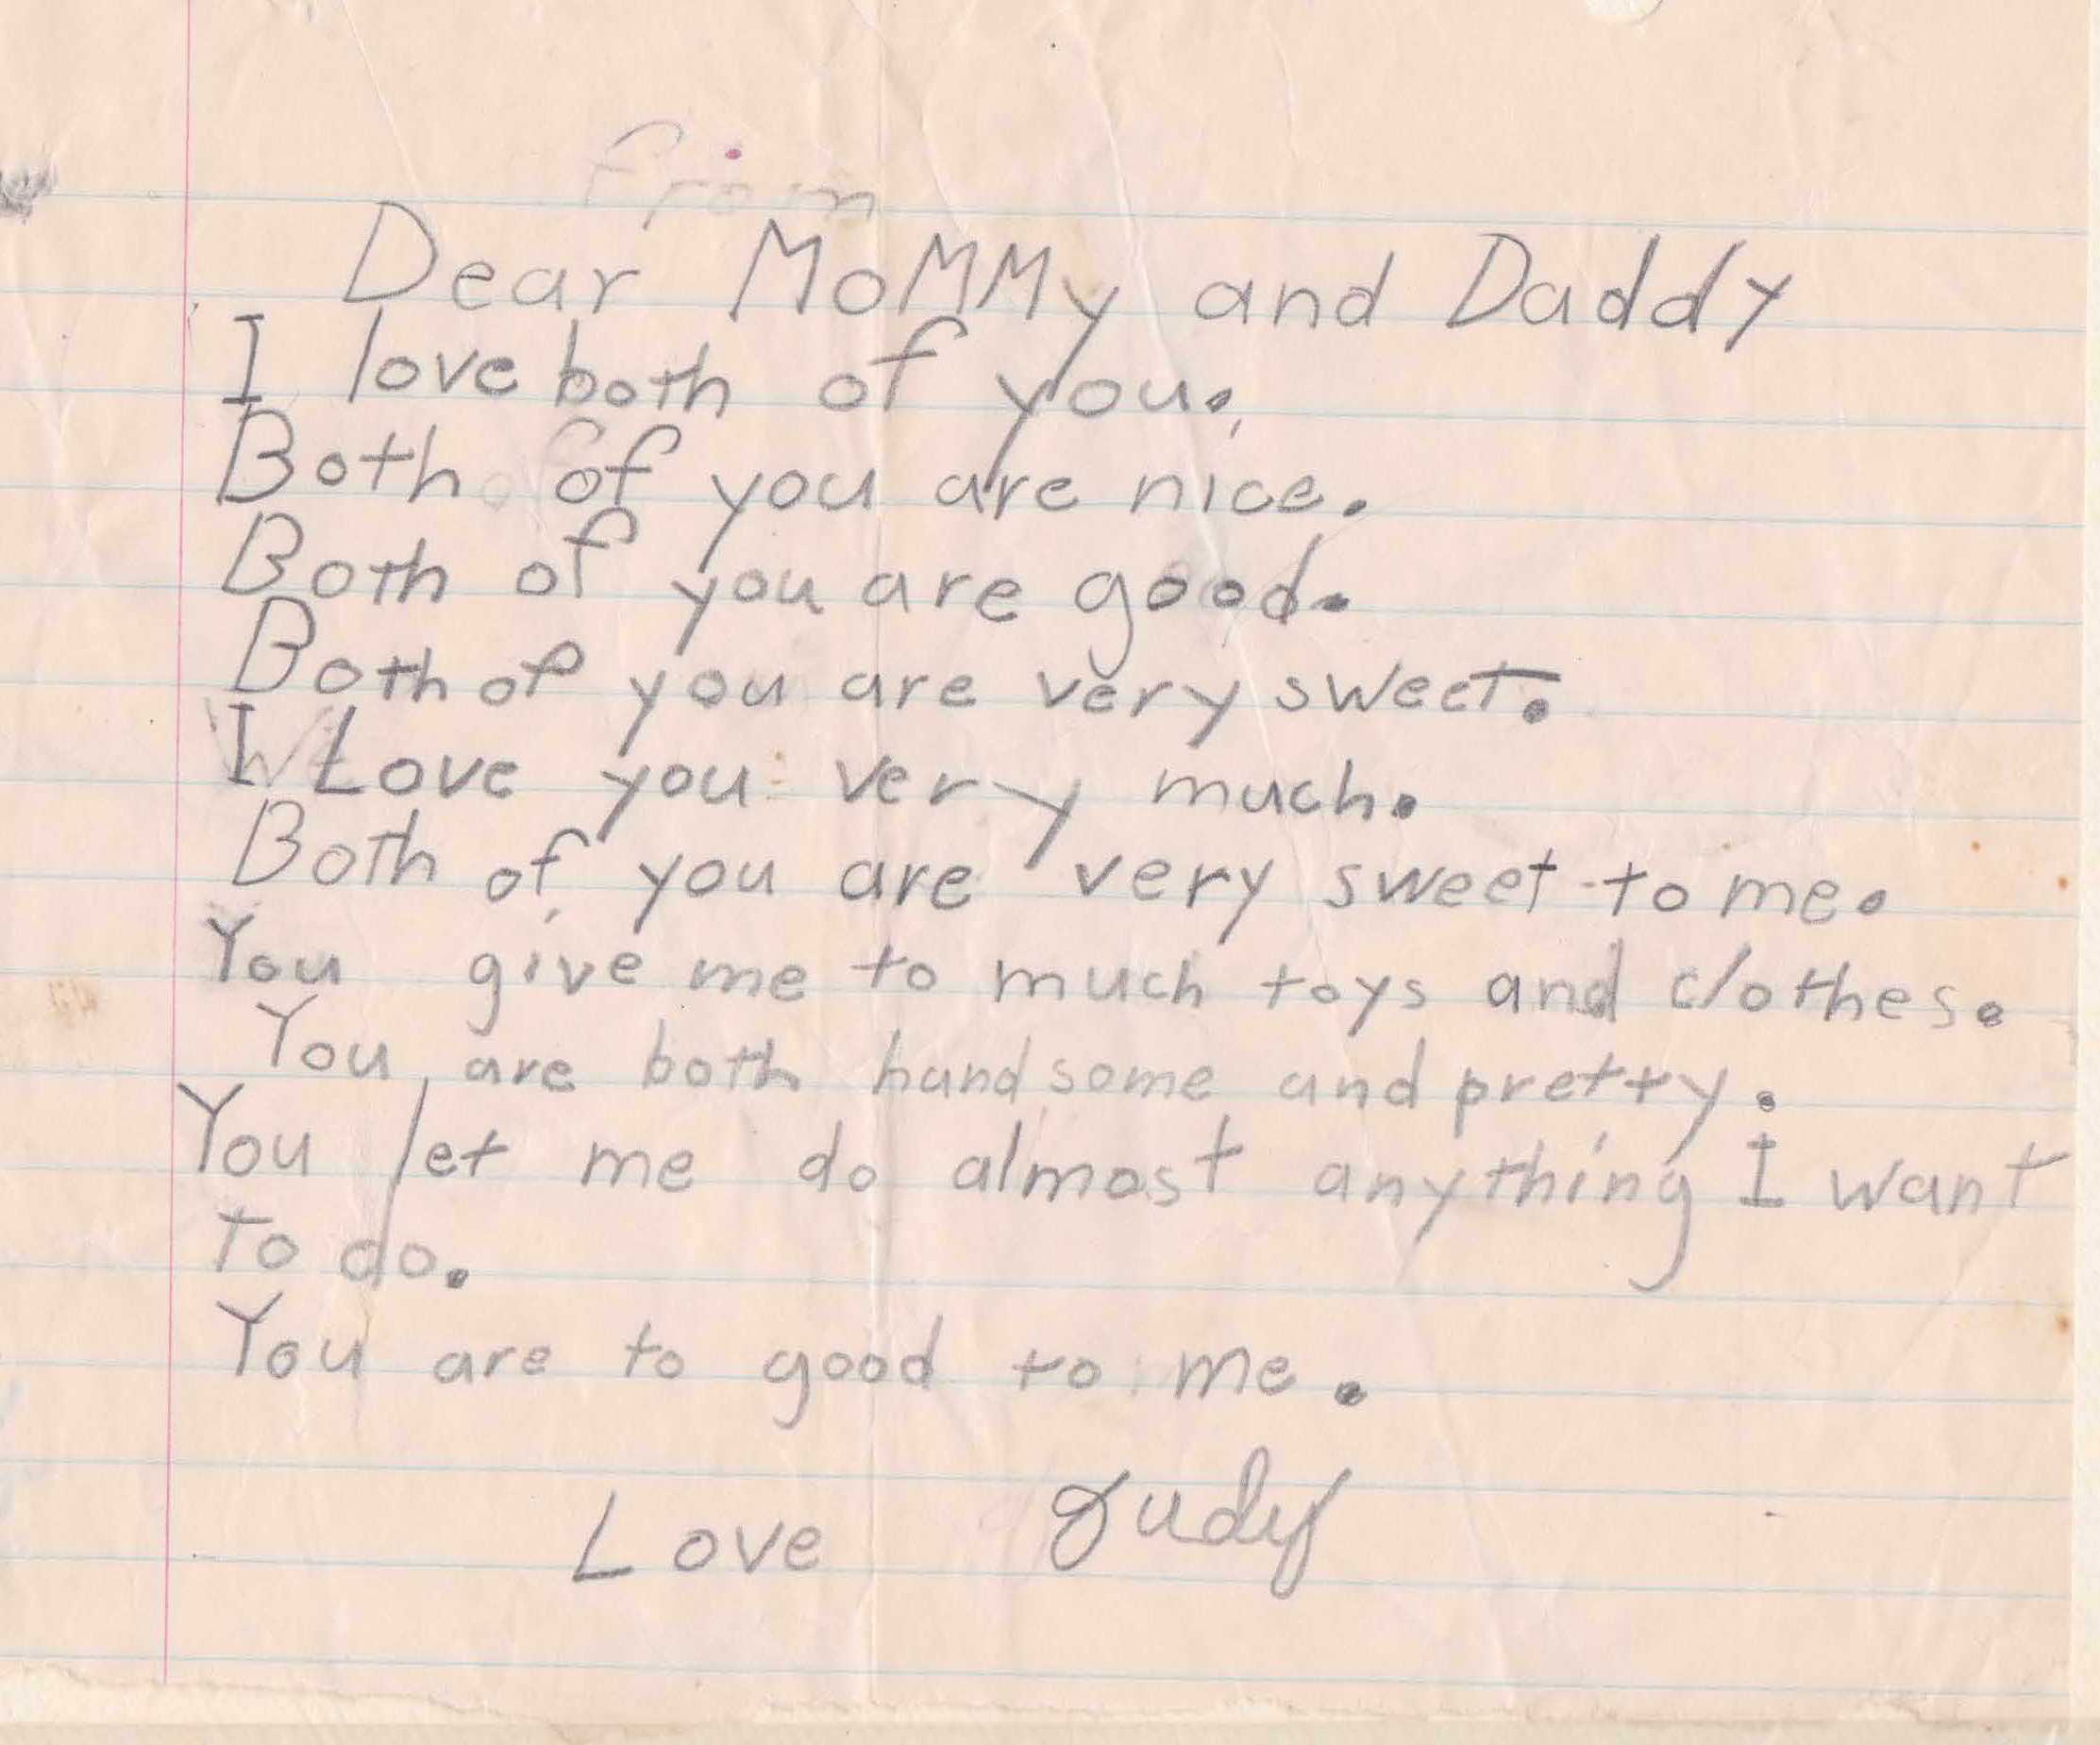 from
Dear MoMMy and Daddy
I love both of you.
Both of you are nice.
Both of you are good.
Both of you are very sweet.
I Love you very much.
Both of you are very sweet to me.
You give me to much toys and clothes.
You are both handsome and pretty.
You let me do almost anything I want
to do.
You are to good to me.
Love Judy